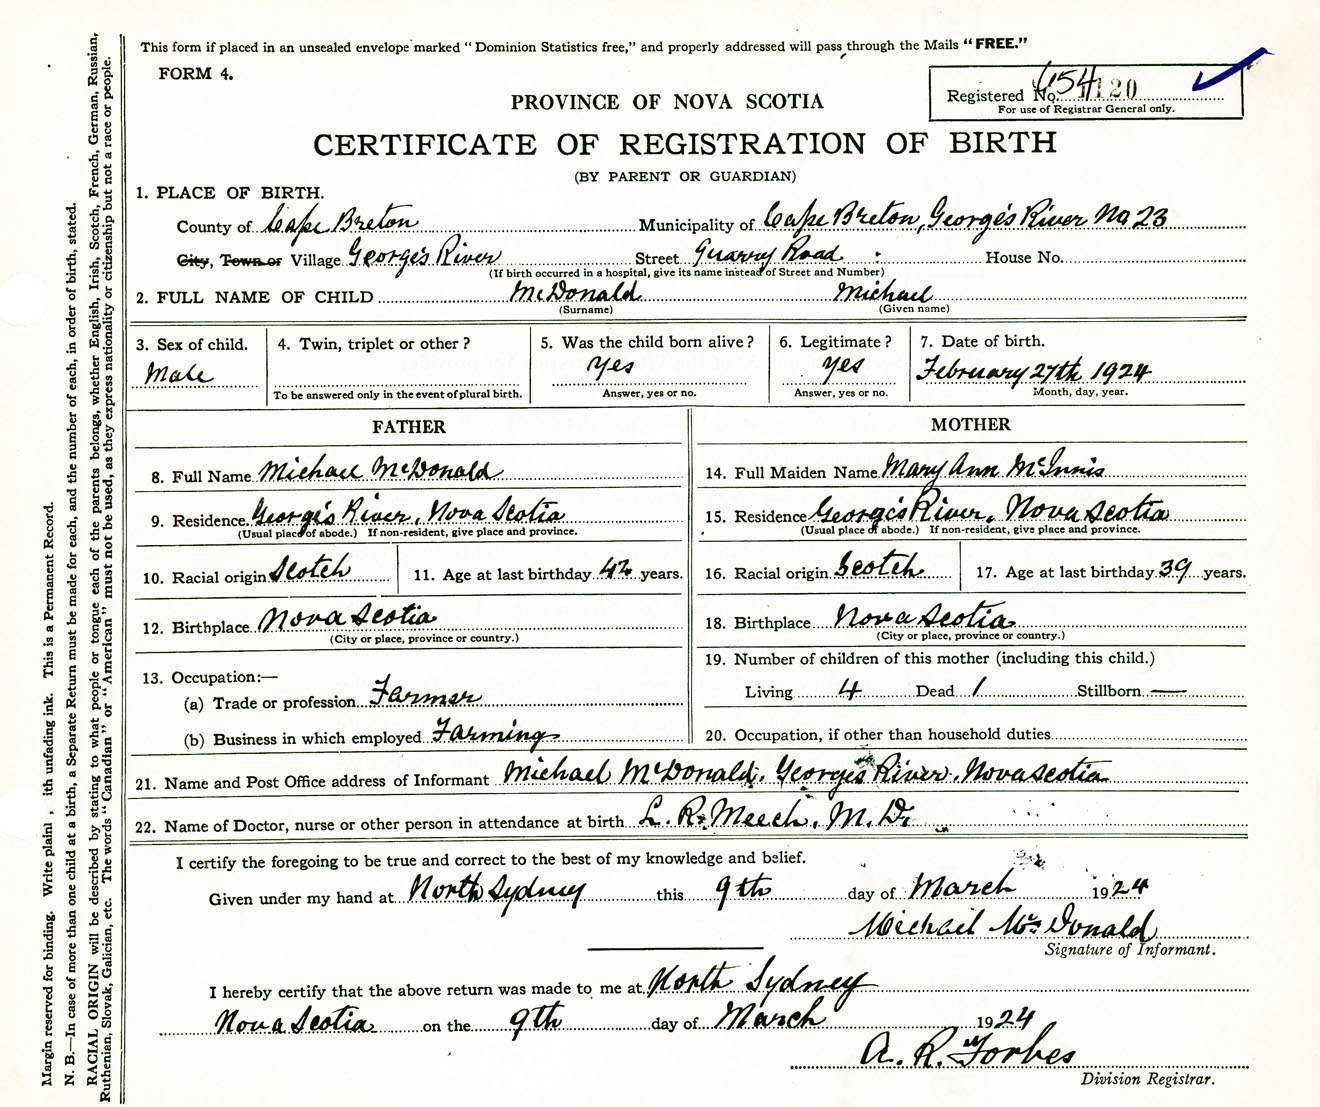 This form if placed in an unsealed envelope marked "Dominion Statistics free," and properly addressed will pass through the Mails "FREE."
FORM 4.
Registered No. 654 1120
For use of Registrar General only.
PROVINCE OF NOVA SCOTIA
CERTIFICATE OF REGISTRATION OF BIRTH
(BY PARENT OR GUARDIAN)
1. PLACE OF BIRTH.
County of Cape Breton Municipality of Cape Breton, George's River No 23
City, Town or Village George's River Street Quarry Road House No.
(If birth occurred in a hospital, give its name instead of Street and Number)
2. FULL NAME OF CHILD McDonald Michael
(Surname) (Given name)
3. Sex of child. 4. Twin, triplet or other? 5. Was the child born alive? 6. Legitimate? 7. Date of birth.
Male Yes Yes February 27th 1924
To be answered only in the event of plural birth. Answer, yes or no. Answer, yes or no. Month, day, year.
FATHER
8. Full Name Michael McDonald
9. Residence George's River, Nova Scotia
(Usual place of abode.) If non-resident, give place and province.
10. Racial origin Scotch 11. Age at last birthday 42 years.
12. Birthplace Nova Scotia
(City or place, province or country.)
13. Occupation:—
(a) Trade or profession Farmer
(b) Business in which employed Farming
MOTHER
14. Full Maiden Name Mary Ann McInnis
15. Residence George's River, Nova Scotia
(Usual place of abode.) If non-resident, give place and province.
16. Racial origin Scotch 17. Age at last birthday 39 years.
18. Birthplace Nova Scotia
(City or place, province or country.)
19. Number of children of this mother (including this child.)
Living 4 Dead 1 Stillborn —
20. Occupation, if other than household duties
21. Name and Post Office address of Informant Michael McDonald, George's River, Nova Scotia
22. Name of Doctor, nurse or other person in attendance at birth L. R. Meech, M. D.
I certify the foregoing to be true and correct to the best of my knowledge and belief.
Given under my hand at North Sydney this 9th day of March 1924
Michael McDonald
Signature of Informant.
I hereby certify that the above return was made to me at North Sydney
Nova Scotia on the 9th day of March 1924
A. R. Forbes
Division Registrar.
Margin reserved for binding. Write plainl , ith unfading ink. This is a Permanent Record.
N. B.—In case of more than one child at a birth, a Separate Return must be made for each, and the number of each, in order of birth, stated.
RACIAL ORIGIN will be described by stating to what people or tongue each of the parents belongs, whether English, Irish, Scotch, French, German, Russian,
Ruthenian, Slovak, Galician, etc. The words "Canadian" or "American" must not be used, as they express nationality or citizenship but not a race or people.